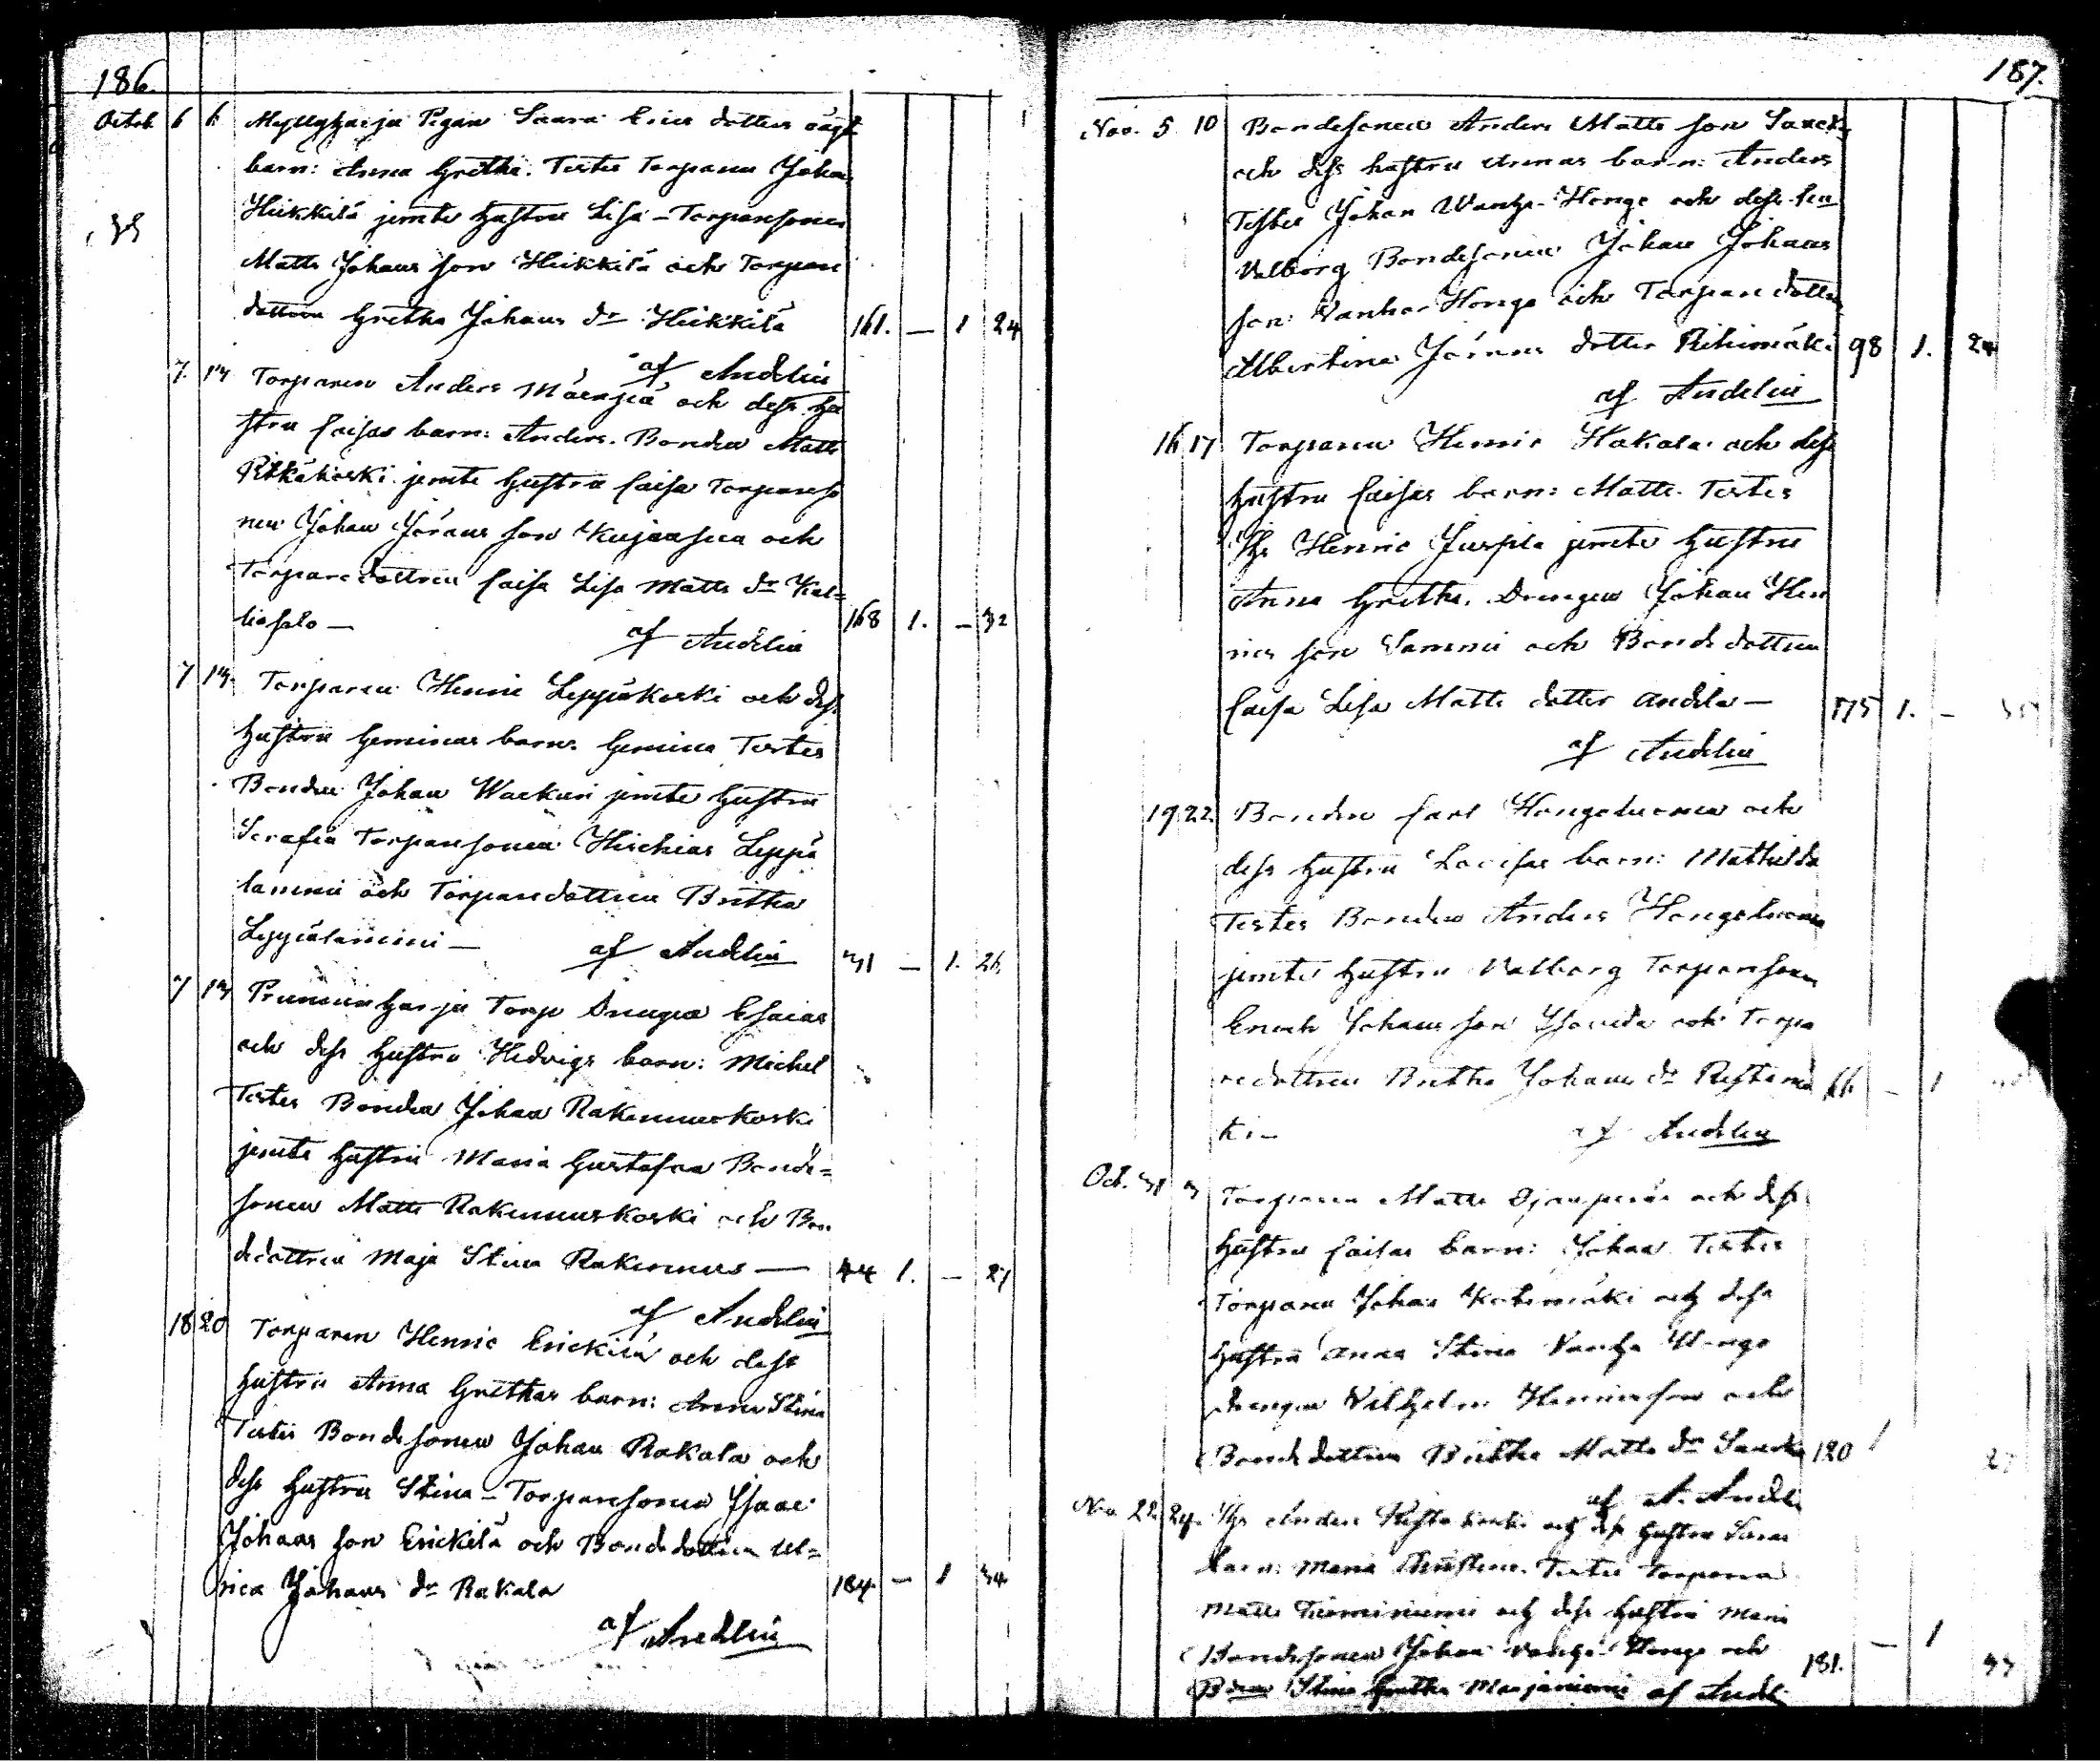 186.
Octob. 6 6 Myllyharju Pigan Saara Erics dotters oägt
barn: Anna Gretha. Testes Torparen Johan
Heikkilä jemte hustru Lisa – Torparesonen
Matts Johans son Heikkilä och Torpare
dottren Gretha Johans dr Heikkilä 161. — 1 24
af Andelin
7. 13 Torparen Anders Mäenpää och dess hu
stru Caisas barn: Anders. Bonden Matts
Pitkäkoski jemte hustru Caisa Torpareso
nen Johan Jörans son Kujanpää och
Torparedottren Caisa Lisa Matts dr Kal=
liosalo — 168 1. — 32
af Andelin
7 13 Torparen Henric Leppäkoski och dess
hustru Geminas barn: Gemina Testes
Bonden Johan Wackuri jemte hustru
Serafia Torparesonen Hiskias Leppä
lammi och Torparedottren Britha
Leppälammi — af Andelin 31 — 1. 26
7 13 harju Torp Drengen Esaias
och dess hustru Hedvigs barn: Michel
Testes Bonden Johan Rakennuskoski
jemte hustru Maria Gustafva Bonde=
sonen Matts Rakennuskoski och Bon
dedottren Maja Stina Rakennus — 44 1. — 27
af Andelin
18 20 Torparen Henric Erickilä och dess
hustru Anna Grethas barn: Anna Stina
Testes Bondesonen Johan Rakala och
dess hustru Stina – Torparesonen Isaac
Johans son Erickilä och Bondedottren Ul=
rica Johans dr Rakala 184. — 1 34
af Andelin
187.
Nov. 5 10 Bondesonen Anders Matts son
och dess hustru Annas barn: Anders
Testes Johan Wanha-Honge och dess hu
Valborg Bondesonen Johan Johans
son Vanha-Honge och Torparedottren
Albertina Jörans dotter Riihimäki 98 1. 24
af Andelin
16 17 Torparen Henric Hakala och dess
hustru Caisas barn: Matts. Testes
Henric Juspila jemte hustru
Anna Gretha. Drengen Johan Hen
rics son Sammi och Bondedottren
Caisa Lisa Matts dotter Andela — 175 1. —
af Andelin
19 22. Bonden Carl Hongoluoma och
dess hustru Lovisas barn: Mathilda
Testes Bonden Anders Hongoluoma
jemte hustru Valborg Torparesonen
Enoch Johans son och Torpa
redottren Britha Johans dr Ristamä 66. — 1
ki — af Andelin
Oct. 31 3 Torparen Matts Ojanperä och dess
hustru Caisas barn: Johan Testes
Torparen Johan Katomäki och dess
hustru Anna Stina Vanha Hongo
drengen Vilhelm Henricsson och
Bondedottren Britha Matts dr 120 1
af A. Andelin
Nov. 22 24. Anders och dess hustru Saras
barn: Maria Christina. Testes Torparen
Matts Tuominiemi och dess hustru Maria
Bondesonen Johan Vanha-Hongo och
Stina Gretha Marjaniemi af Andeli 181. — 1